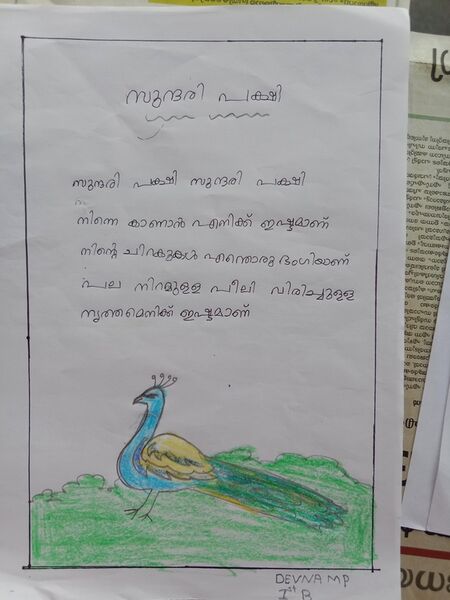 സുന്ദരി പക്ഷി
സുന്ദരി പക്ഷി സുന്ദരി പക്ഷി
നിന്നെ കാണാൻ എനിക്ക് ഇഷ്ടമാണ്
നിന്റെ ചിറകുകൾ എന്തൊരു ഭംഗിയാണ്
പല നിറമുള്ള പീലി വിരിച്ചുള്ള
നൃത്തമെനിക്ക് ഇഷ്ടമാണ്
DEVNA MP
Ist B